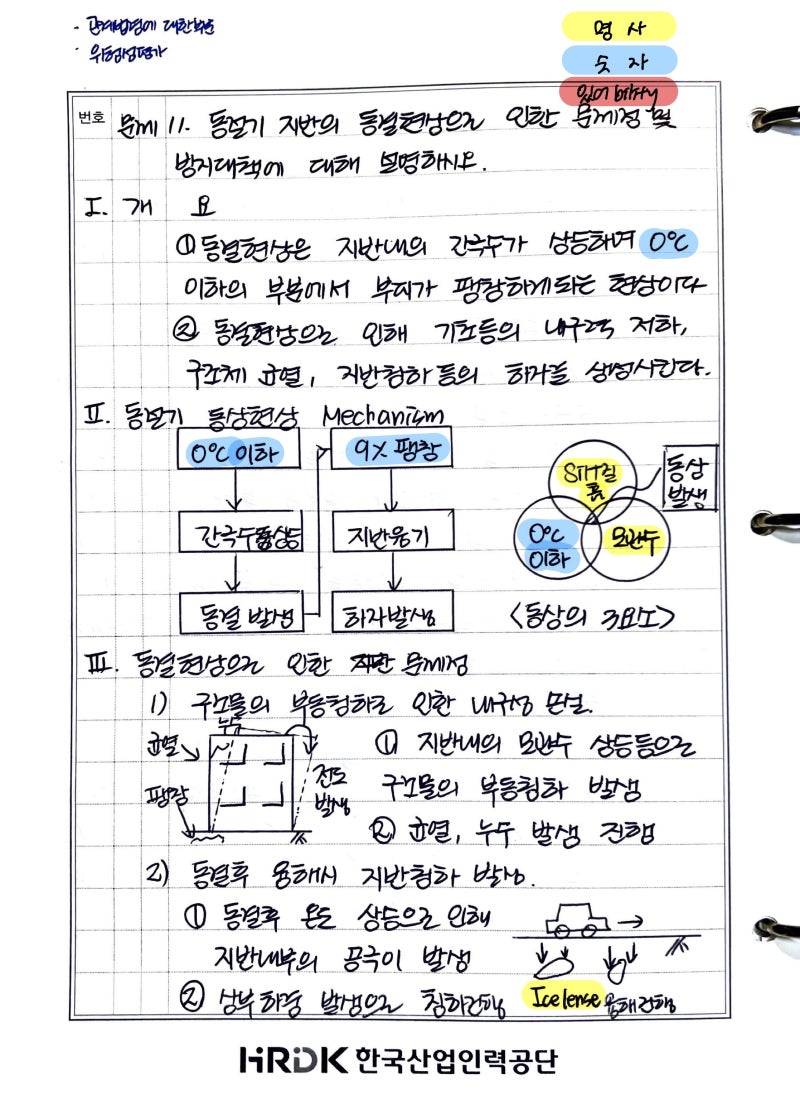 - 관계법령에 대한부분
- 위험성평가
명 사
숫 자
번호 문제 11. 동절기 지반의 동결현상으로 인한 문제점 및
방지대책에 대해 설명하시오.
I. 개 요
① 동결현상은 지반내의 간극수가 상승하며 0℃
이하의 부분에서 부피가 팽창하게되는 현상이다
② 동결현상으로 인해 기초등의 내구력 저하,
구조체 균열, 지반침하 등의 하자를 발생시킨다.
II. 동절기 동상현상 Mechanism
0℃ 이하
9% 팽창
간극수 상승
지반융기
동결 발생
하자발생
Silt질
흙
동상
발생
0℃
이하
모관수
<동상의 3요소>
III. 동결현상으로 인한 문제점
1) 구조물의 부동침하로 인한 내구성 손실.
누수
균열
팽창
전도
발생
① 지반내의 모관수 상승등으로
구조물의 부동침하 발생
② 균열, 누수 발생 진행
2) 동결후 융해시 지반침하 발생.
① 동결후 온도 상승으로 인해
지반내부의 공극이 발생
② 상부하중 발생으로 침하진행
Ice lense 융해진행
HRDK 한국산업인력공단